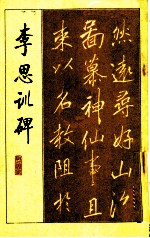 李思訓碑
然遠尋好山海
圖慕神仙事且
束以名教阻於